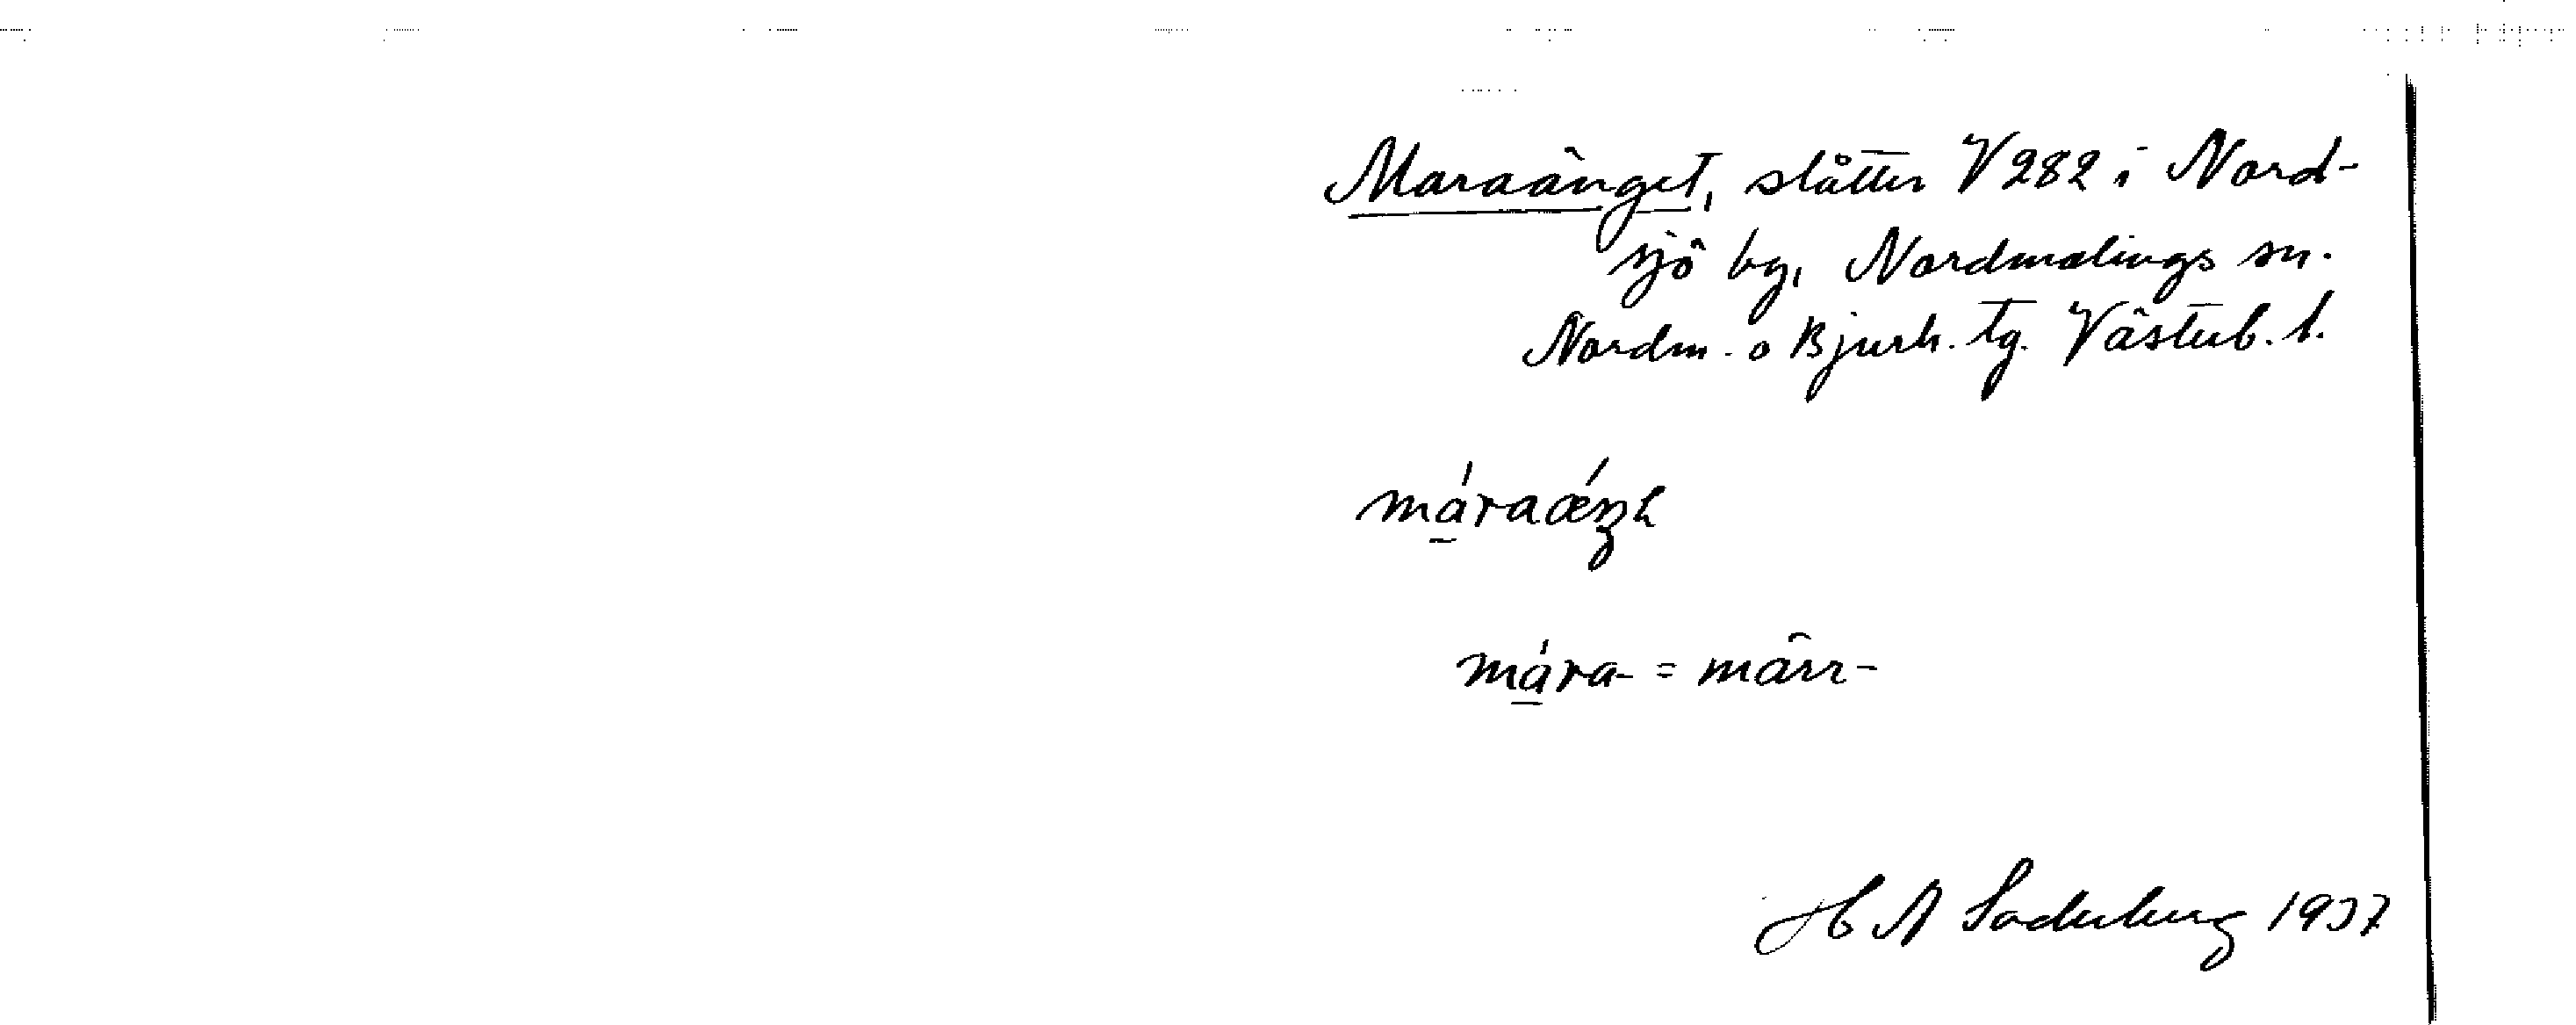 Maraänget, slåtter V 282 i Nord-
sjö by, Nordmalings sn.
Nordm. o Bjurh. tg. Västerb. l.
máraǽŋh
mára- = märr-
H A Söderberg 1937